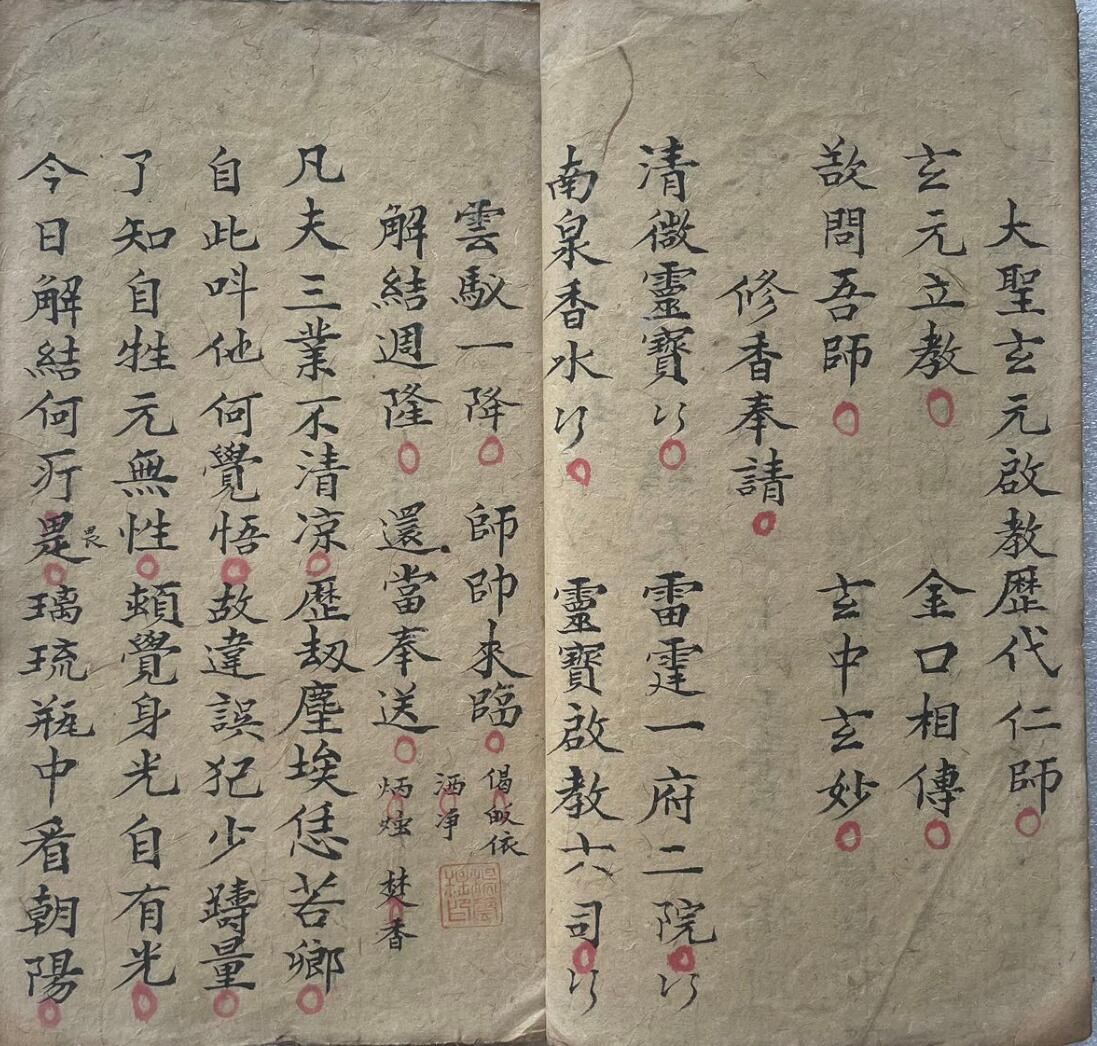 大聖玄元啟教歷代仁師
玄元立教 金口相傳
敔問吾師 玄中玄妙
修香奉請
清微靈寶 雷霆一府二院
南泉香水 靈寶啟教六司
雲馭一降 師帥來臨
偈皈依
洒净
解結週隆 還當奉送
炳烛 焚香
凡夫三業不清凉歷刼塵埃恁苦鄉
自此呌他何覺悟故違誤犯少躊量
了知自性元無性頓覺身光自有光
今日解結何所
畏
璃琉瓶中看朝陽